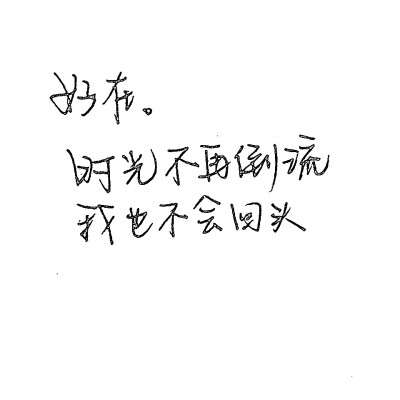 好在。
时光不再倒流
我也不会回头